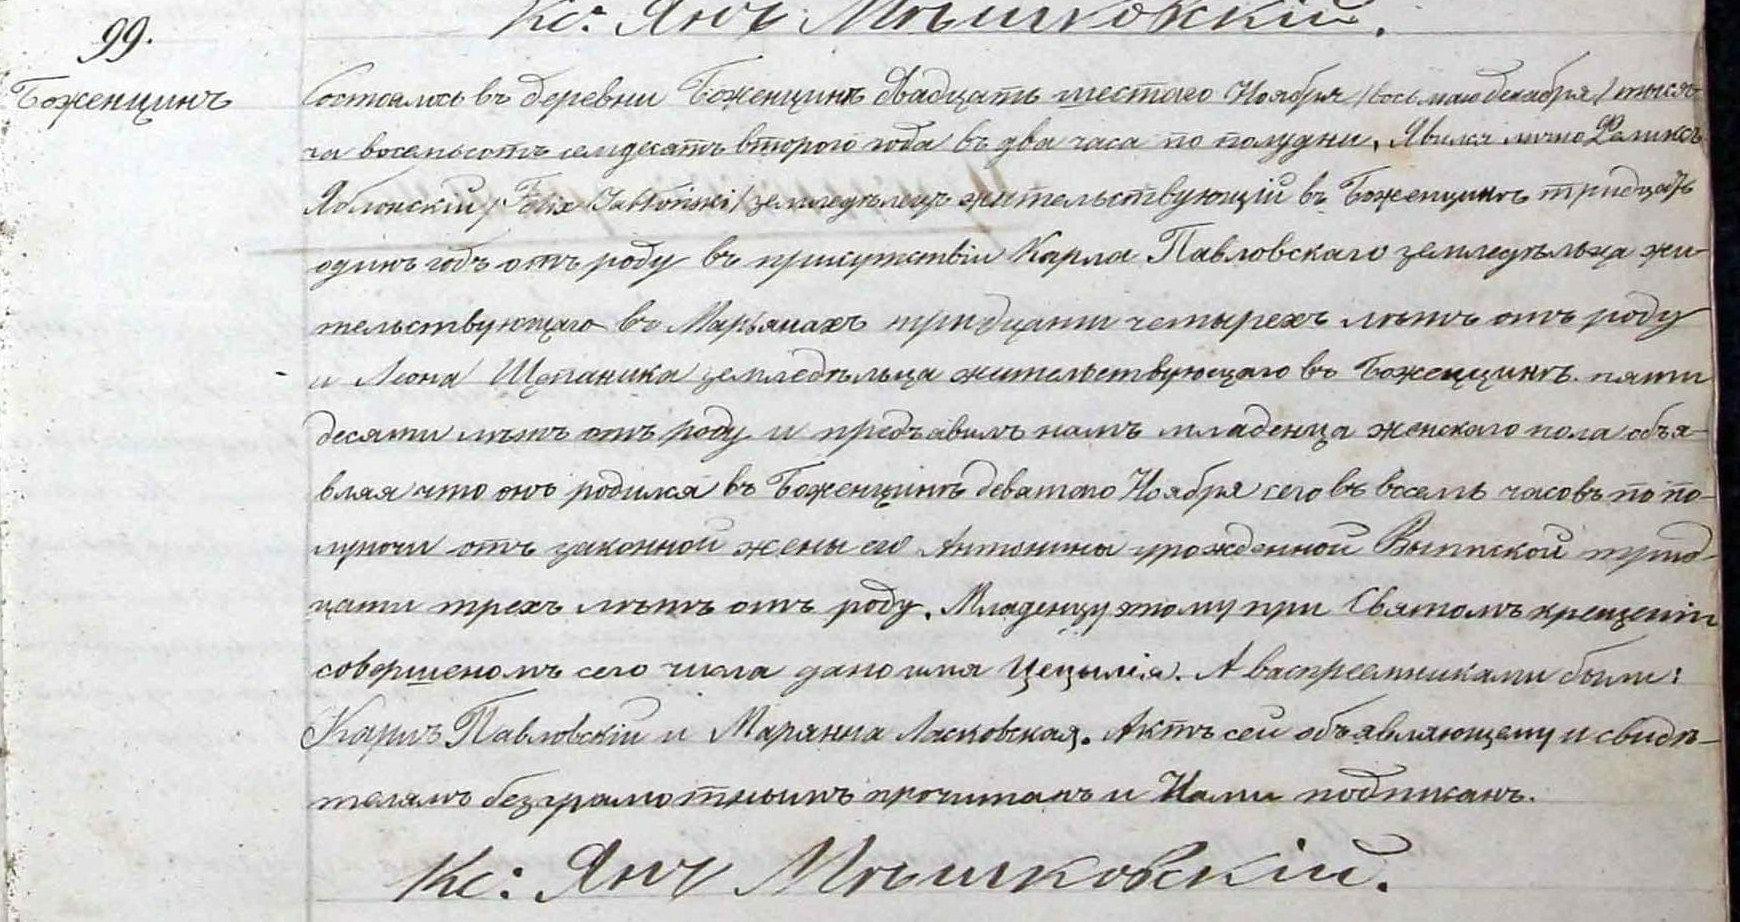 Кс: Янъ Мѣшковскій.
99.
Боженцинъ
Состоялось въ деревни Боженцинѣ двадцать шестаго Ноября /восьмаго декабря/ тысяч-
ча восемьсотъ семдесятъ второго года въ два часа по полудни. Явился лично Феликсъ
Яблонскій /Felix Jabłoński/ земледѣлецъ жительствующій въ Боженцинѣ тридцать
одинъ годъ отъ роду въ присутствіи Карла Павловскаго земледѣльца жи-
тельствующаго въ Марьянахъ тридцати четырехъ лѣтъ отъ роду
и Леона Щепаника земледѣльца жительствующаго въ Боженцинѣ пяти
десяти лѣтъ отъ роду и предъявилъ намъ младенца женскаго пола объя-
вляя что онъ родился въ Боженцинѣ девятаго Ноября сего въ восемь часовъ по по-
луночи отъ законной жены его Антонины урожденной трид-
цати трехъ лѣтъ отъ роду. Младенцу этому при Святомъ крещеніи
совершеномъ сего числа дано имя Цецылія. А васпреемниками были:
Карлъ Павловскій и Марянна Ласковская. Актъ сей объявляющему и свидѣ-
телямъ безграмотнымъ прочитанъ и Нами подписанъ.
Кс: Янъ Мѣшковскій.